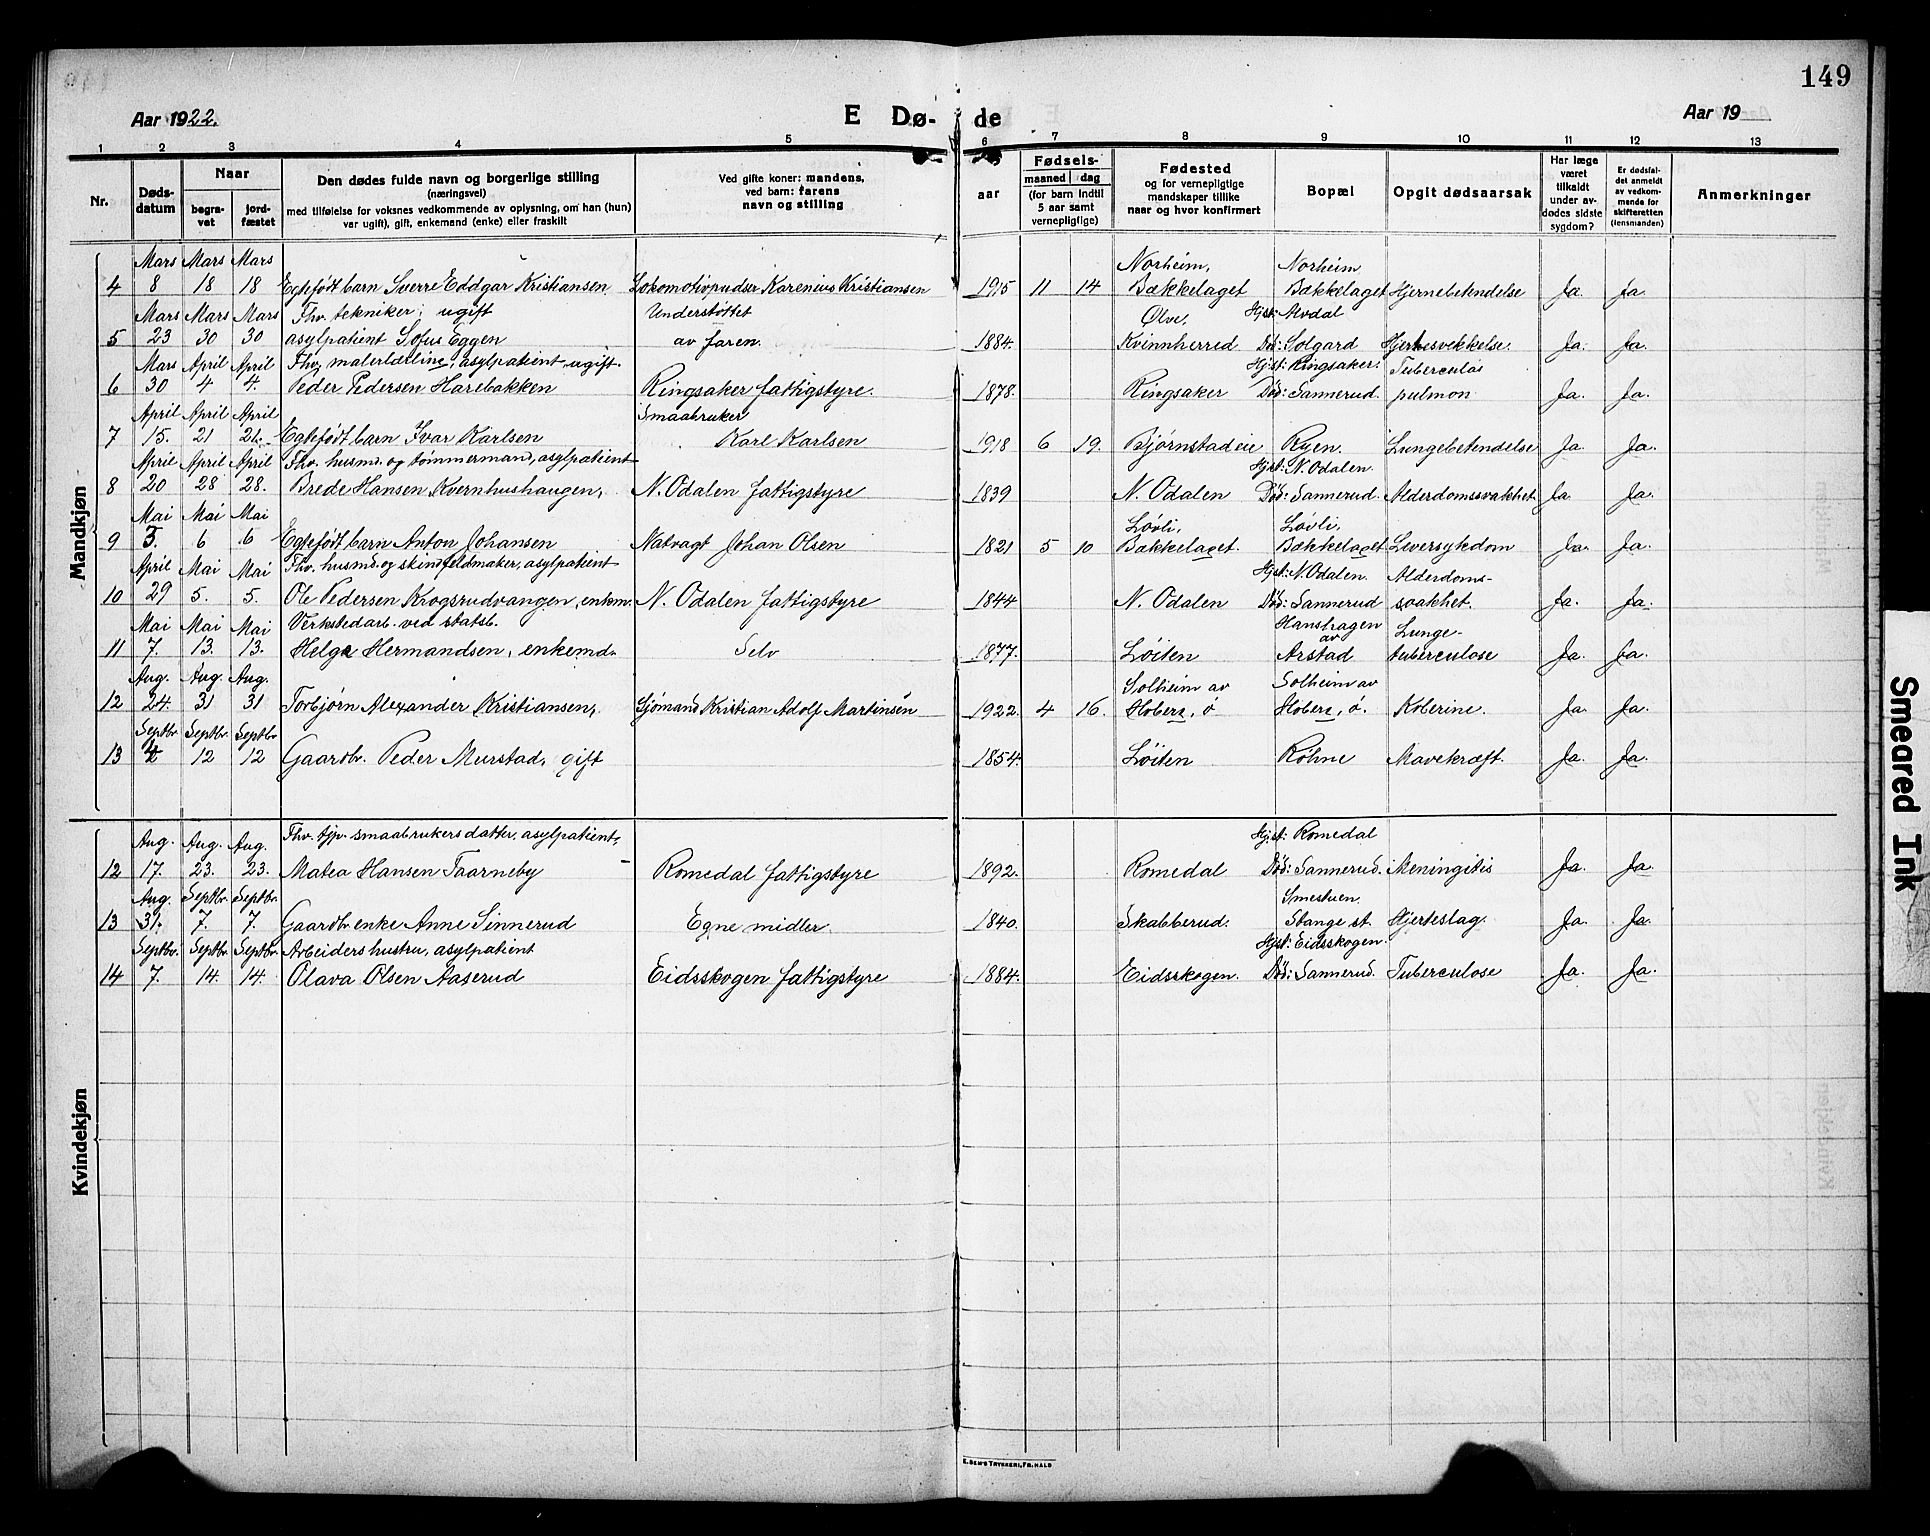 149
Aar 1922.
E Dø- de
Aar 19
1 2 3 4 5 6 7 8 9 10 11 12 13
Nr.
Døds-
datum
Naar
begra-
vet
jord-
fæstet
Den dødes fulde navn og borgerlige stilling
(næringsvei)
med tilføielse for voksnes vedkommende av oplysning, om han (hun)
var ugift), gift, enkemand (enke) eller fraskilt
Ved gifte koner: mandens,
ved barn: farens
navn og stilling
aar
Fødsels-
maaned dag
(for barn indtil
5 aar samt
vernepligtige)
Fødested
og for vernepligtige
mandskaper tillike
naar og hvor konfirmert
Bopæl
Opgit dødsaarsak
Har læge
været
tilkaldt
under av-
dødes sidste
sygdom?
Er dødsfal-
det anmeldt
av vedkom-
mende for
skifteretten
(lensmanden)
Anmerkninger
Mandkjøn
Mars Mars Mars Norheim, Norheim
4 8 18 18 Egtefødt barn Sverre Eddgar Kristiansen Lokomotivpudser Karenius Kristiansen 1915 11 14 Bækkelaget Bækkelaget Hjernebetendelse Ja. Ja.
Mars Mars Mars Fhv. tekniker, ugift Understøttet Ølve, Hjst: Alvdal
5 23 30 30 asylpatient Sofus Eggen av faren. 1884. Kvinnherred Død: Solgard Hjertesvekkelse. Ja. Ja.
Mars April April Fhv. malerlærling, asylpatient, ugift. Hjst: Ringsaker. Tuberculos
6 30 4 4. Peder Pedersen Harebakken Ringsaker fattigstyre. 1878. Ringsaker Død: Sannerud. pulmon Ja. Ja.
April April April Smaabruker
7 15. 21 21. Egtefødt barn Ivar Karlsen Karl Karlsen 1918 6 19. Bjørnstadeie Ryen. Lungebetendelse Ja. Ja.
April April April Fhv. husmd. og tømmermand, asylpatient Hjst: N. Odalen.
8 20 28 28. Brede Hansen Kvernhushaugen, N. Odalen fattigstyre 1839 N. Odalen Død: Sannerud Alderdomssvakhet. Ja. Ja.
Mai Mai Mai Løvli, Løvli,
9 3. 6 6 Egtefødt barn Anton Johansen Natvagt Johan Olsen 1821 5 10 Bækkelaget. Bækkelaget Leversykdom Ja. Ja.
April Mai Mai Fhv. husmd. og skindfeldmaker, asylpatient Hjst: N. Odalen. Alderdoms-
10 29 5. 5. Ole Pedersen Krogsrudvangen, enkm. N. Odalen fattigstyre 1844 N. Odalen Død: Sannerud svakhet. Ja. Ja.
Mai Mai Mai Verkstedarb. ved statsb. Hanshagen av Lunge-
11 7. 13. 13. Helge Hermandsen, enkemd. Selv 1877. Løiten Arstad tuberculose Ja. Ja.
Aug. Aug. Aug. Solheim av Solheim av
12 24. 31 31 Torbjørn Alexander Kristiansen, Sjømand Kristian Adolf Martinsen 1922. 4 16. Hoberg, ø Hoberg, ø. Kolerine. Ja. Ja.
Septbr. Septbr. Septbr.
13 4 12 12 Gaardbr. Peder Murstad, gift 1854. Løiten Røhne Mavekræft. Ja. Ja.
Kvindekjøn
Aug. Aug. Aug. Fhv. tjp. smaabrukersdatter, asylpatient, Hjst: Romedal
12 17. 23. 23. Matea Hansen Taarneby Romedal fattigstyre 1892. Romedal Død: Sannerud. Meningitis Ja. Ja.
Aug. Septbr. Septbr. Smestuen
13 31. 7. 7. Gaardbr enke Anne Sinnerud Egne midler. 1840. Skabberud. Stange st. Hjerteslag. Ja. Ja.
Septbr. Septbr. Septbr. Arbeiders hustru, asylpatient Hjst: Eidsskogen.
14 7. 14. 14. Olava Olsen Aaserud Eidsskogen fattigstyre 1884. Eidsskogen. Død: Sannerud. Tuberculose Ja. Ja.
E. SEM'S TRYKKERI, FR.HALD
Smeared Ink